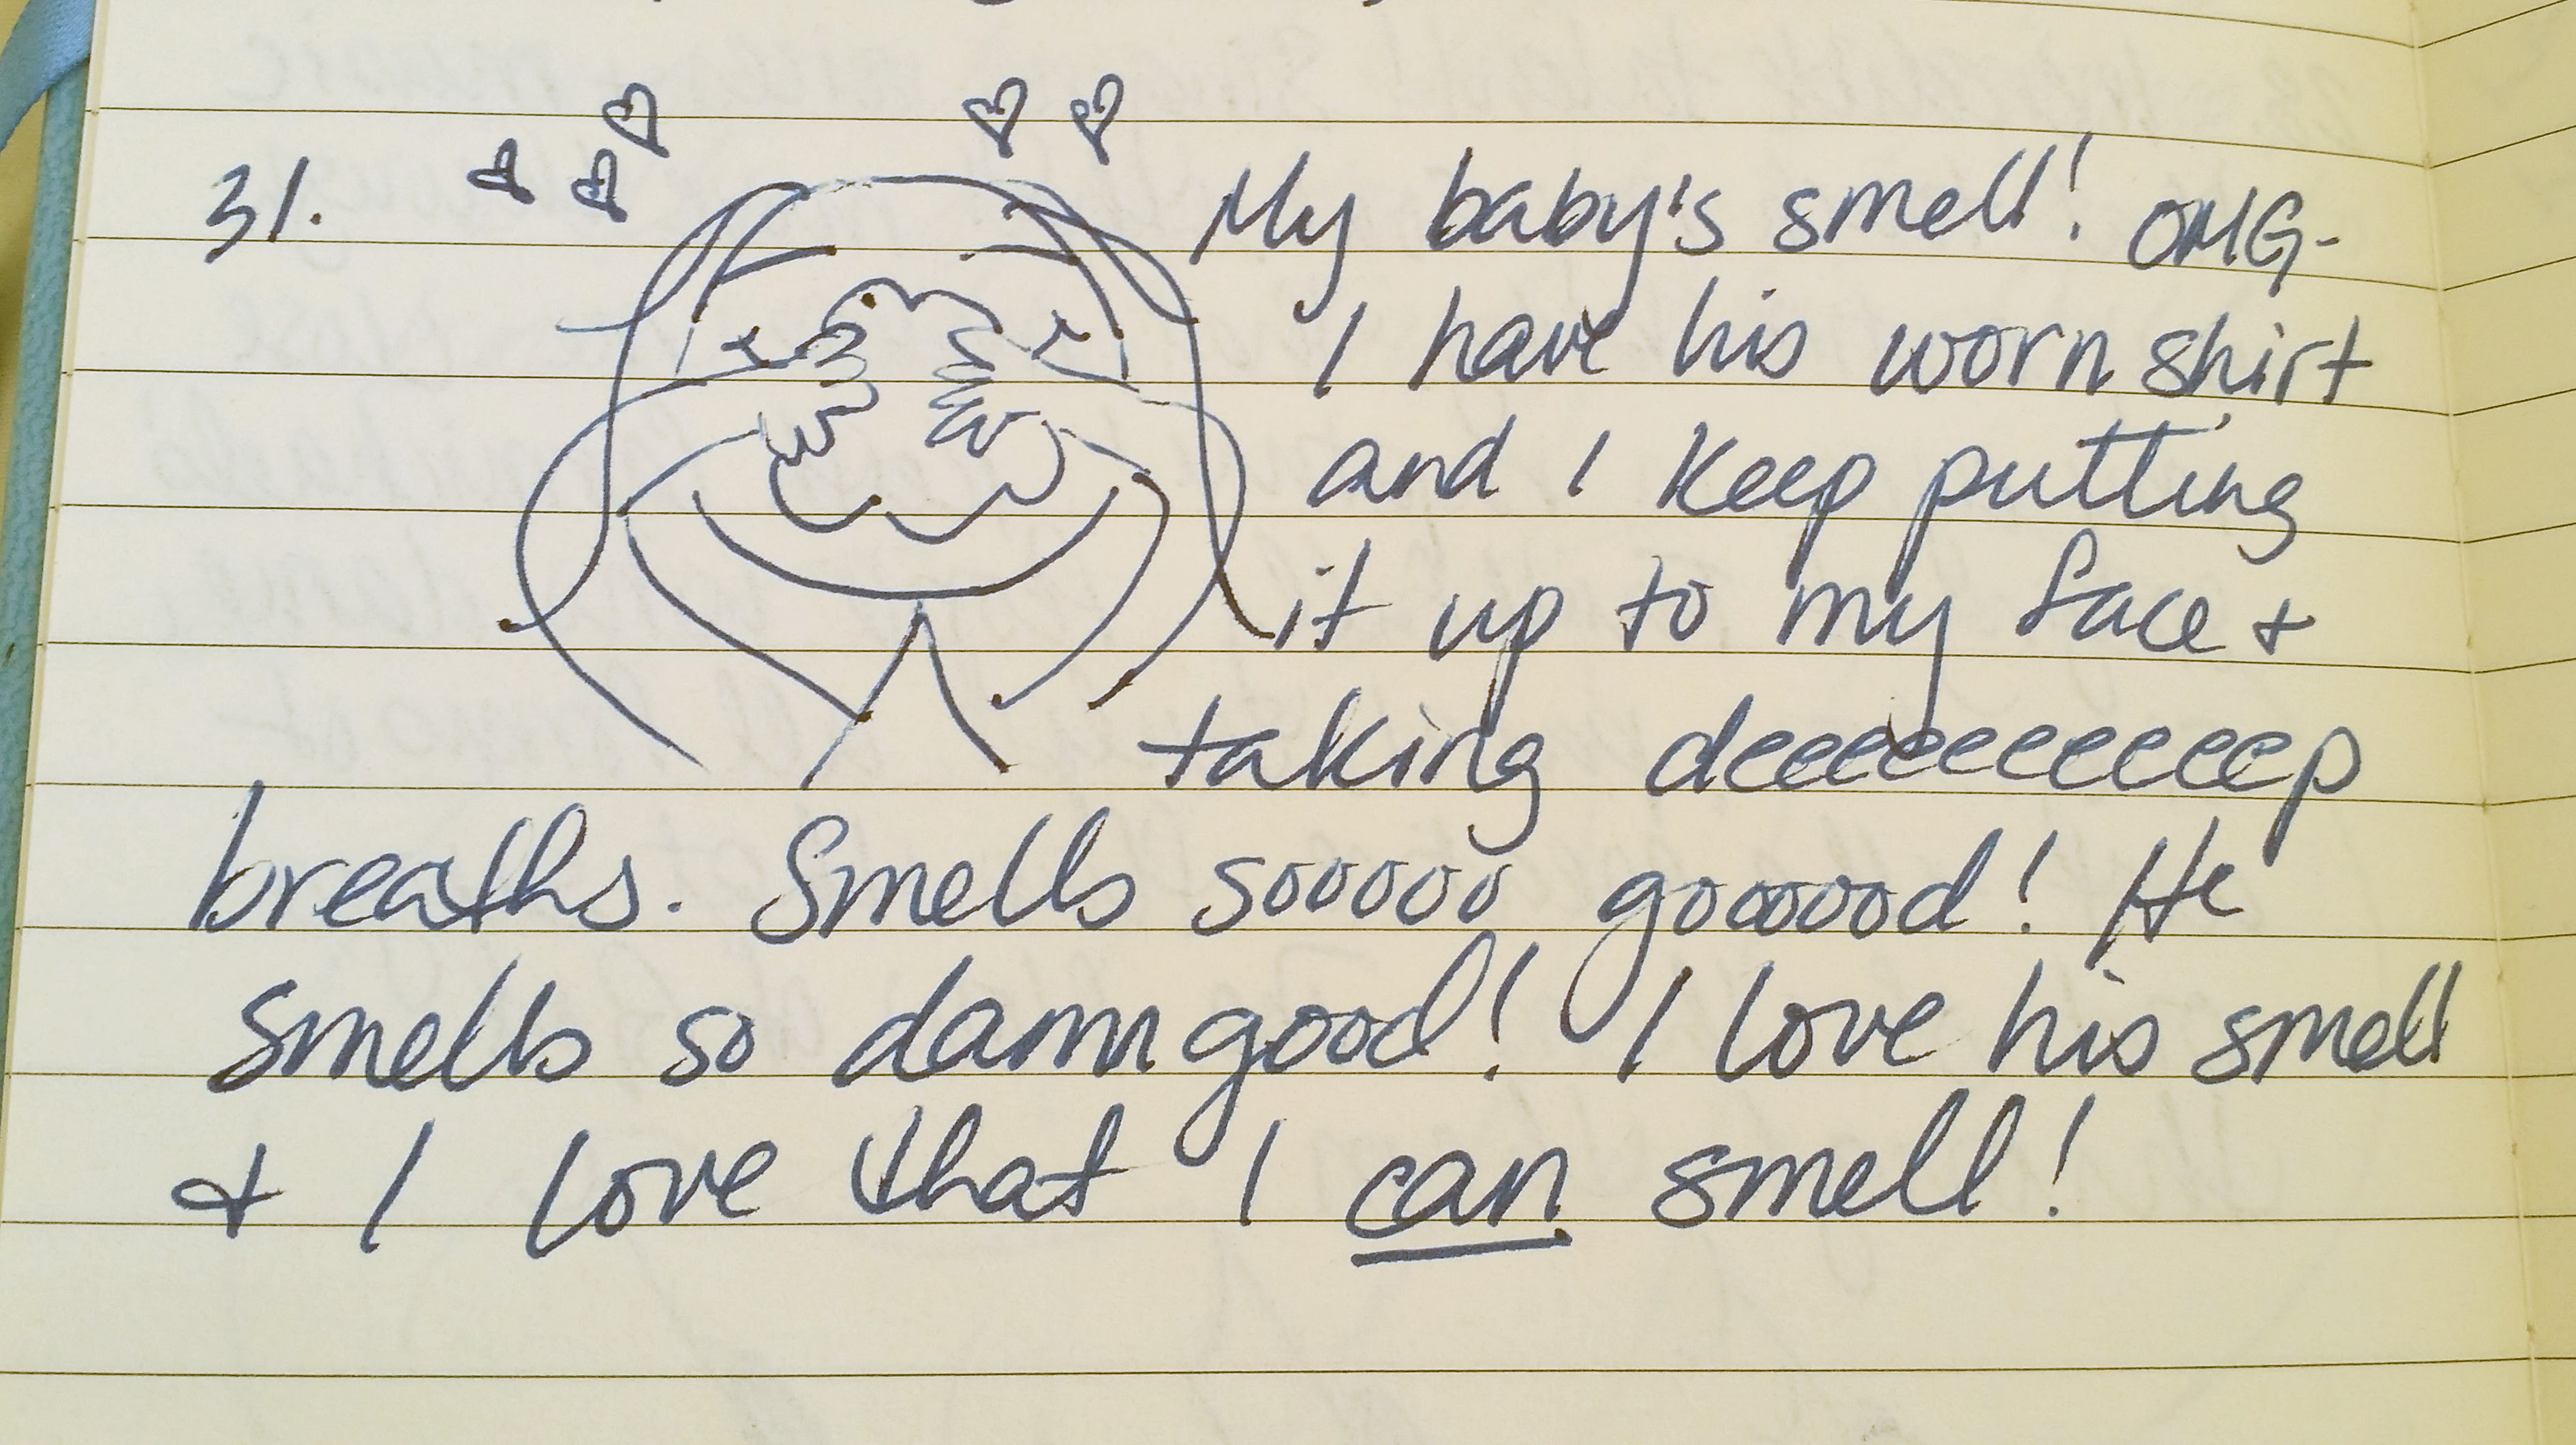 31. My baby's smell! OMG-
I have his worn shirt
and I keep putting
it up to my face +
taking deeeeeeeeeeeep
breaths. Smells sooooo goooood! He
smells so damn good! I love his smell
+ I love that I can smell!